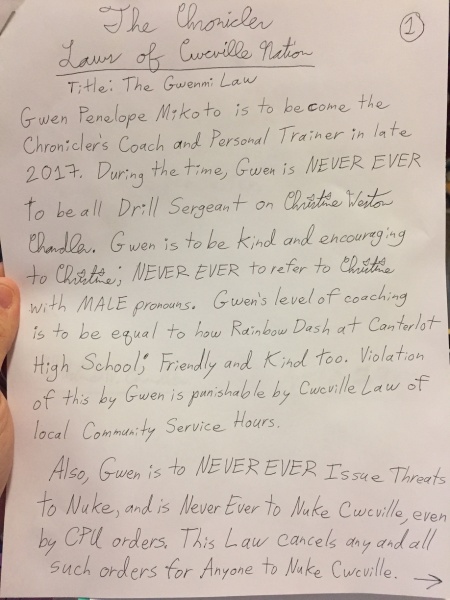 The Chronicler
①
Laws of Cwcville Nation
Title: The Gwenmi Law
Gwen Penelope Mikoto is to become the
Chronicler's Coach and Personal Trainer in late
2017. During the time, Gwen is NEVER EVER
to be all Drill Sergeant on Christine Weston
Chandler. Gwen is to be kind and encouraging
to Christine; NEVER EVER to refer to Christine
with MALE pronouns. Gwen's level of coaching
is to be equal to how Rainbow Dash at Canterlot
High School; Friendly and Kind too. Violation
of this by Gwen is punishable by Cwcville Law of
local Community Service Hours.
Also, Gwen is to NEVER EVER Issue Threats
to Nuke, and is Never Ever to Nuke Cwcville, even
by CPU orders. This Law cancels any and all
such orders for Anyone to Nuke Cwcville. →